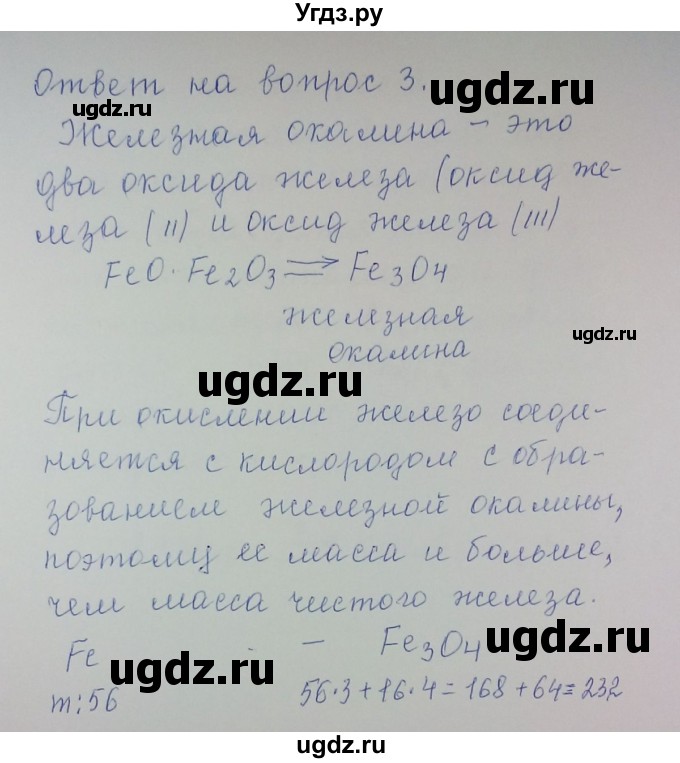 Угдз.ру
Ответ на вопрос 3.
ugdz.ru
ugdz.ru
Железная окалина - это
два оксида железа (оксид же-
леза (II) и оксид железа (III)
FeO·Fe₂O₃ ⇒ Fe₃O₄
железная
ugdz.ru
окалина
ugdz.ru
При окислении железо соеди-
няется с кислородом с обра-
зованием железной окалины,
поэтому ее масса и больше,
чем масса чистого железа.
Fe - Fe₃O₄
ugdz.ru
ugdz.ru
m:56 56·3+16·4=168+64=232
ugdz.ru